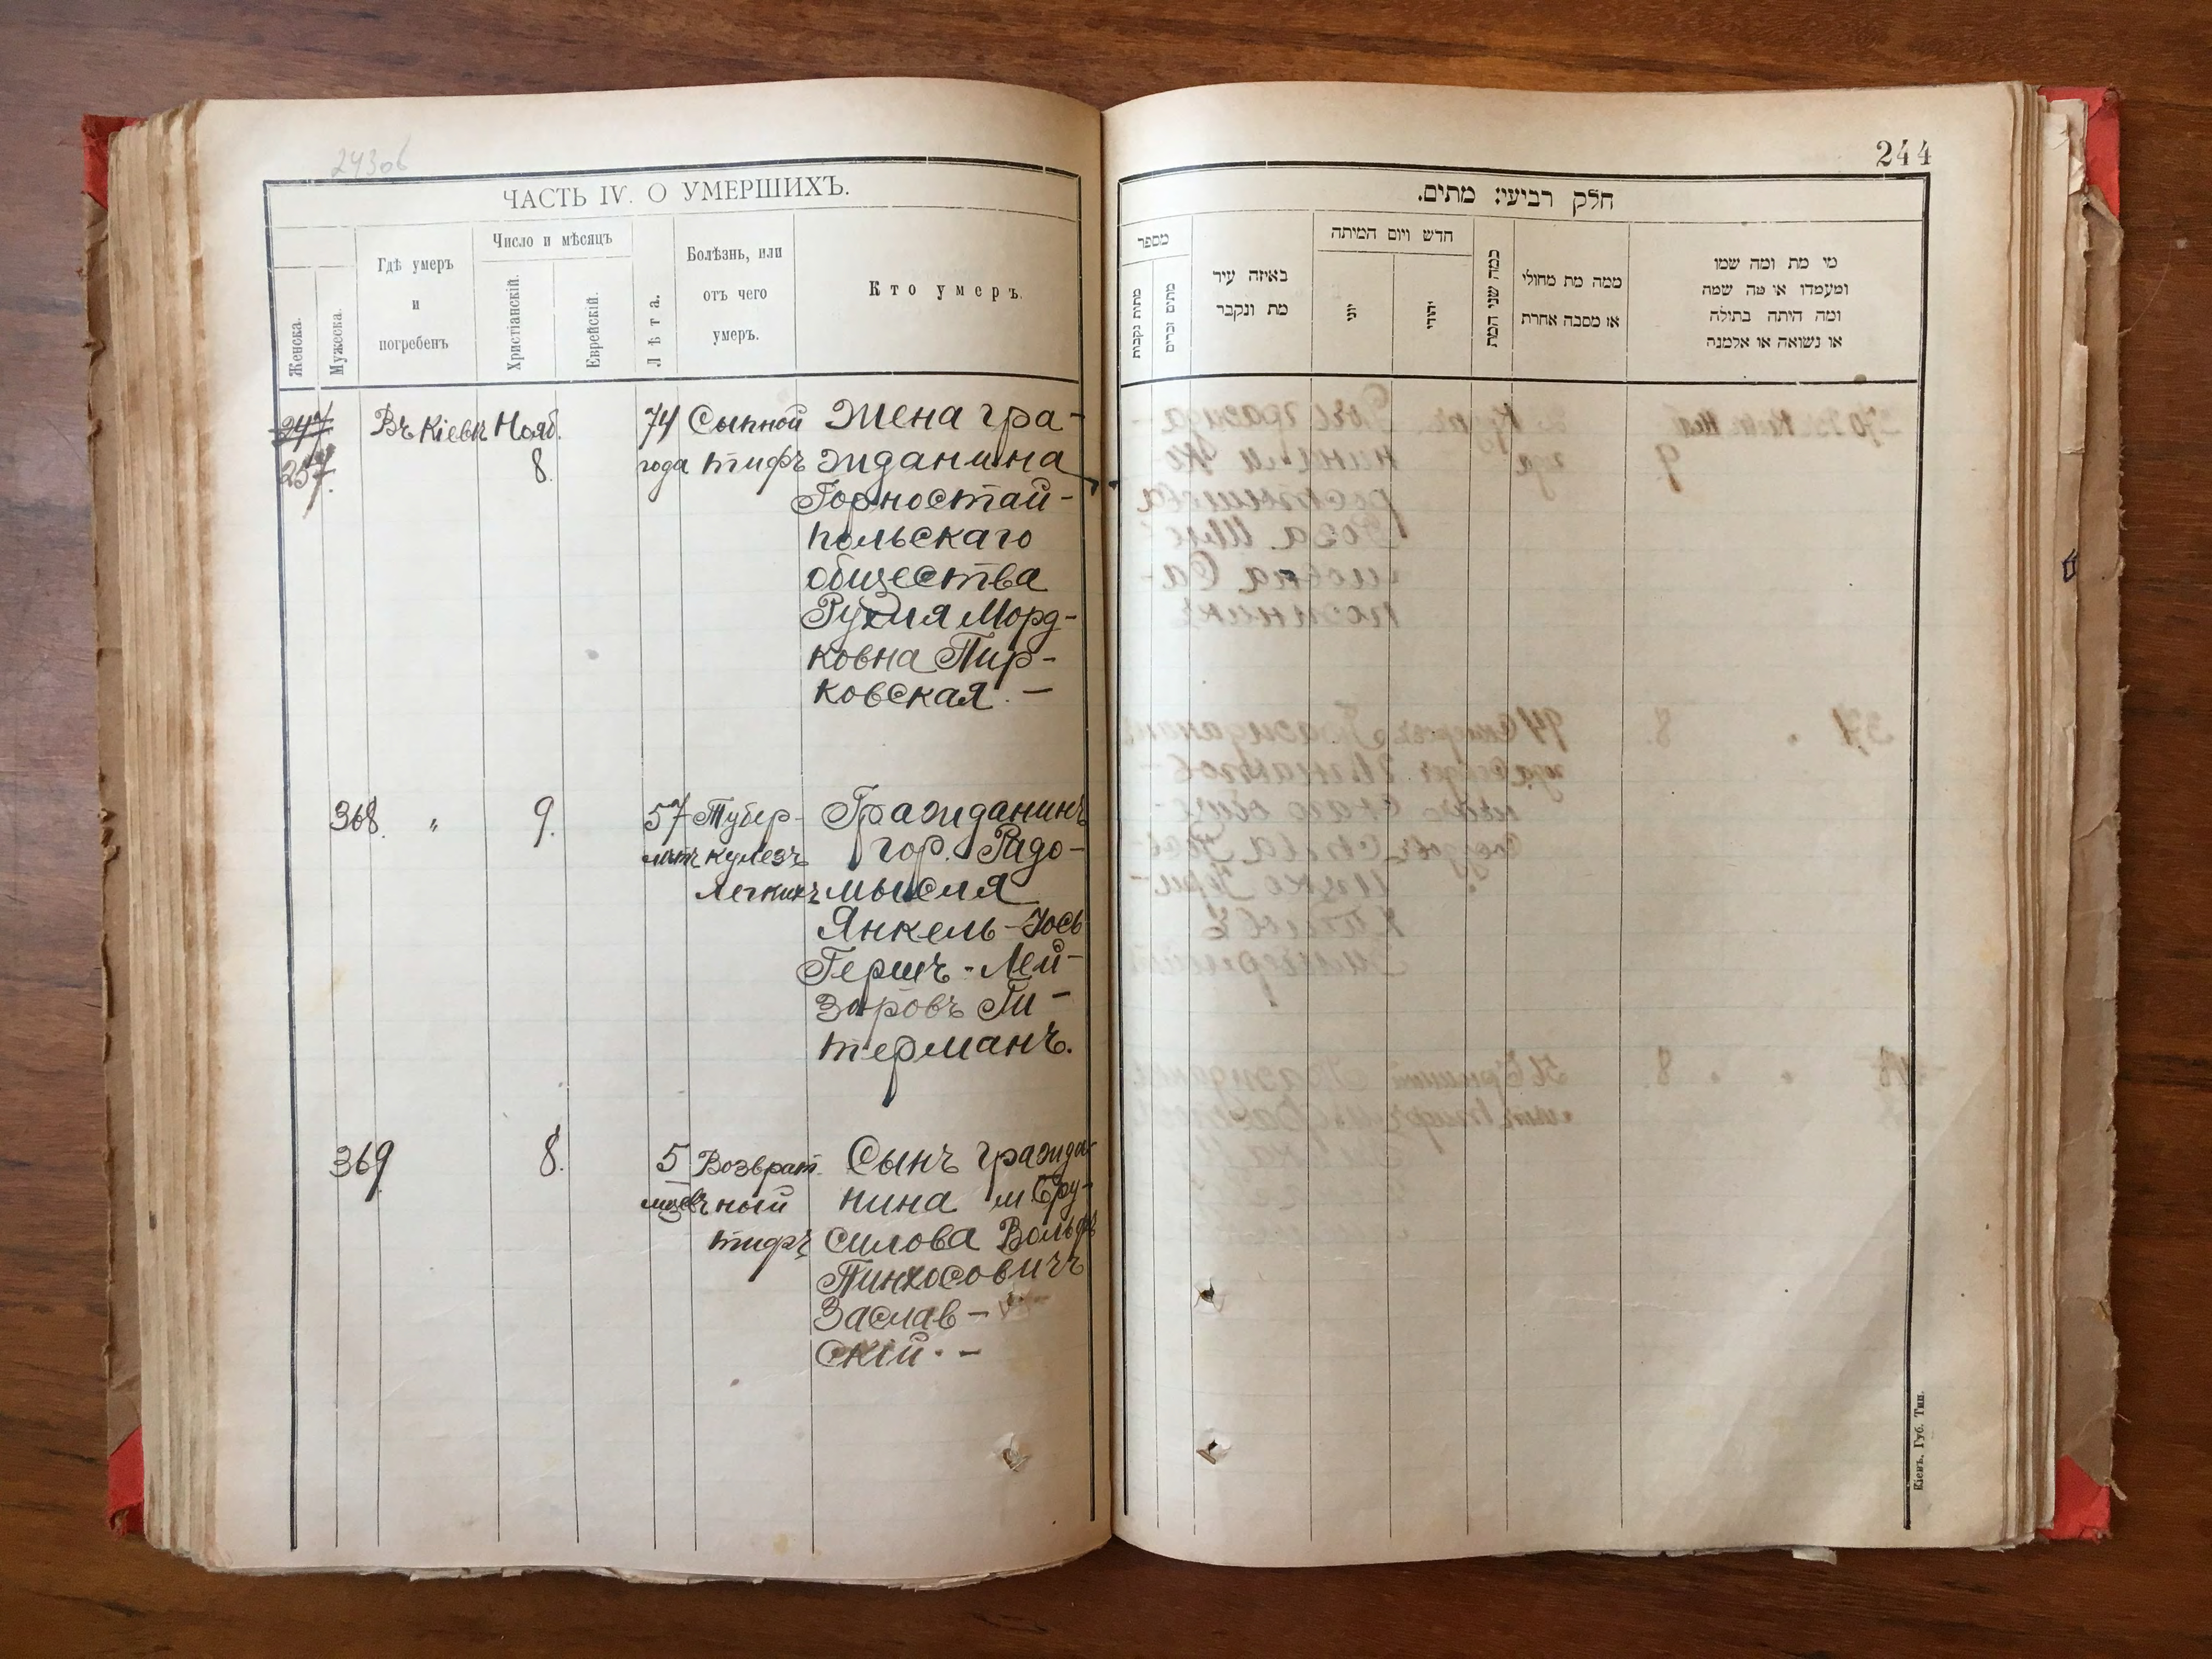 243об
ЧАСТЬ IV. О УМЕРШИХЪ.
Женска.
Мужеска.
Гдѣ умеръ
и
погребенъ
Число и мѣсяцъ
Христіанскій.
Еврейскій.
Лѣта.
Болѣзнь, или
отъ чего
умеръ.
Кто умеръ.
247
257.
Въ Кіевѣ
Нояб.
8.
74
года
Сыпной
тифъ
Жена гра-
жданина
Горностай-
польскаго
общества
Рухля Морд-
ковна Пир-
ковская. —
368.
"
9.
57
лѣтъ
Тубер-
кулезъ
легкихъ
Гражданинъ
гор. Радо-
мысля
Янкель-Іось
Гершъ-Лей-
заровъ Ги-
терманъ.
369
8.
5
Возврат
ный
тифъ
Сынъ гражда-
нина м Бру-
силова Вольфъ
Пинхосовичъ
Заслав-
скій. —
244
חלק רביעי: מתים.
מספר
מתות נקבות
מתים זכרים
באיזה עיר
מת ונקבר
חדש ויום המיתה
יוני
יהודי
כמה שני המת
ממה מת מחולי
או מסבה אחרת
מי מת ומה שמו
ומעמדו או מה שמה
ומה היתה בתולה
או נשואה או אלמנה
Кіевъ. Губ. Тип.